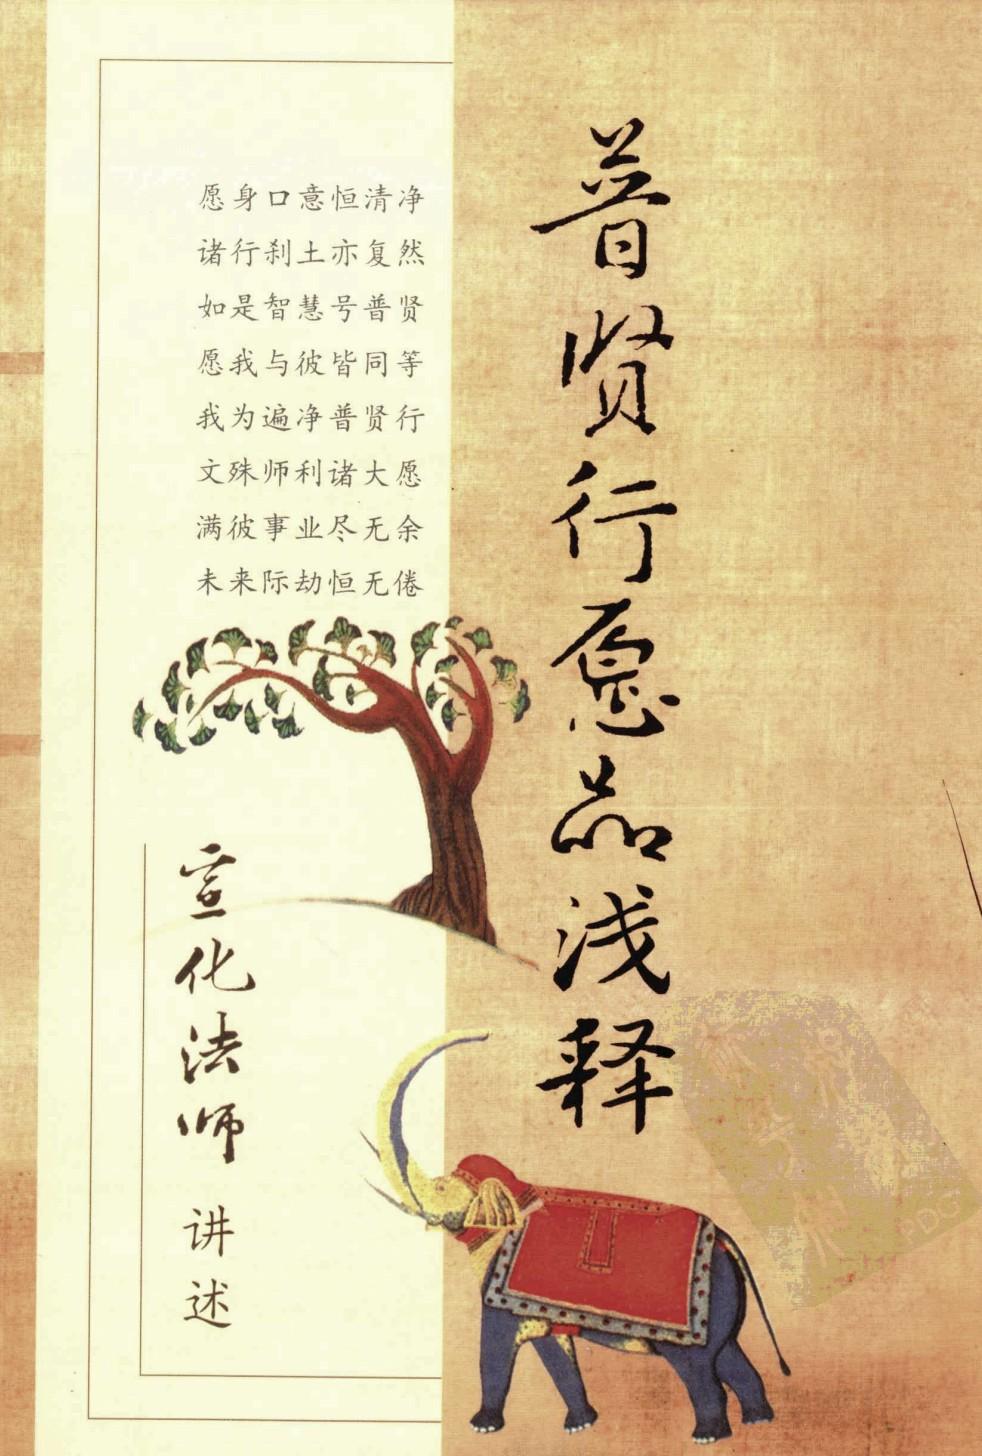 普贤行愿品浅释
愿身口意恒清净
诸行刹土亦复然
如是智慧号普贤
愿我与彼皆同等
我为遍净普贤行
文殊师利诸大愿
满彼事业尽无余
未来际劫恒无倦
宣化法师 讲述